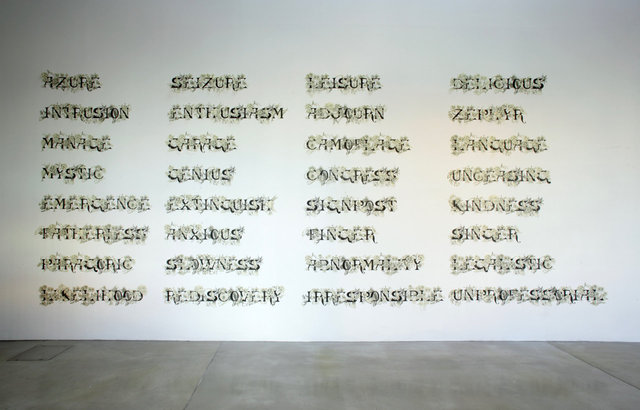 AZURE SEIZURE LEISURE DELICIOUS
INTRUSION ENTHUSIASM ADJOURN ZEPHYR
MANAGE GARAGE CAMOFLAGE LANGUAGE
MYSTIC GENIUS CONGRESS UNCEASING
EMERGENCE EXTINGUISH SIGNPOST KINDNESS
FATHERLESS ANXIOUS FINGER SINGER
PARAGORIC SLOWNESS ABNORMALITY LEGALISTIC
LIKELIHOOD REDISCOVERY IRRESPONSIBLE UNPROFESSORIAL